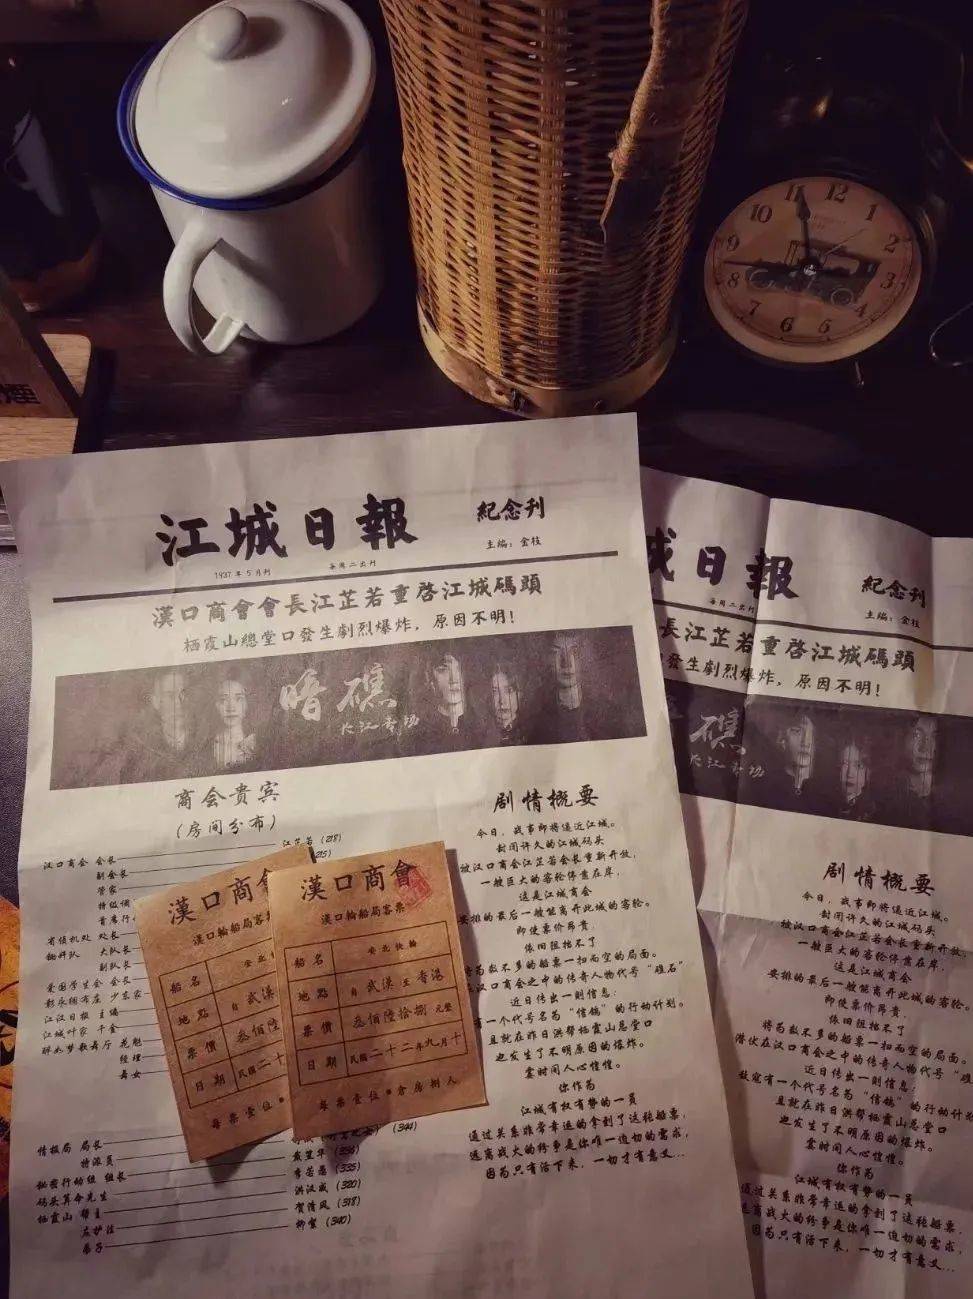 煙
12
1
2
3
4
5
6
7
8
9
10
11
江城日報
紀念刊
主编：金枝
1937年5月刊
每周二出刊
漢口商會會長江芷若重啓江城碼頭
栖霞山總堂口發生劇烈爆炸，原因不明！
暗礁
大江香坊
商会貴宾
(房间分布)
汉口商会 会长 江芷若 (218)
副会长
管家
特级调
首席行
省侦机处 处长
缉奸队 大队长
副队长
爱国学生会 会长
彭永绸布庄 少东家
江汉日报 主编
江城叶家 千金
醉北梦歌舞厅 花魁
经理
舞女
情报局 局长 (344)
特派员
秘密行动组 组长 李若愚 (335)
码头算命先生 洪汉成 (320)
栖霞山 帮主 贺清风 (318)
左护法 柳絮 (340)
弟子
剧情概要
今日，战事即将逼近江城。
封闭许久的江城码头
被汉口商会江芷若会长重新开放，
一艘巨大的客轮停靠在岸，
这是江城商会
安排的最后一艘能离开此城的客轮。
即使票价昂贵，
依旧阻挡不了
将为数不多的船票一扫而空的局面。
在汉口商会之中的传奇人物代号“礁石”
近日传出一则信息：
有一个代号名为“信鸽”的行动计划。
且就在昨日洪帮栖霞山总堂口
也发生了不明原因的爆炸。
霎时间人心惶惶。
你作为
江城有权有势的一员
通过关系非常幸运的拿到了这张船票，
远离战火的纷争是你唯一迫切的需求，
因为只有活下来，一切才有意义...
漢口商會
船名
地點 自 武漢
票價 叁佰陸
日期 民國二十
每票壹位
漢口商會
漢口輪船局客票
船名 安北快輪
地點 自 武漢 至 香港
票價 叁佰陸拾捌 元整
日期 民國二十二年九月十
每票壹位●倉房捌人
城日報
紀念刊
主编：金枝
每周二出刊
長江芷若重啓江城碼頭
發生劇烈爆炸，原因不明！
礁
大江香坊
剧情概要
今日，战事即将逼近江城。
封闭许久的江城码头
被汉口商会江芷若会长重新开放，
一艘巨大的客轮停靠在岸，
这是江城商会
安排的最后一艘能离开此城的客轮。
即使票价昂贵，
依旧阻挡不了
将为数不多的船票一扫而空的局面。
潜伏在汉口商会之中的传奇人物代号“礁
近日传出一则信息：
敌寇有一个代号名为“信鸽”的行动计
且就在昨日洪帮栖霞山总堂口
也发生了不明原因的爆炸。
霎时间人心惶惶。
你作为
江城有权有势的一员
通过关系非常幸运的拿到了这张船票，
远离战火的纷争是你唯一迫切的需求，
因为只有活下来，一切才有意义...